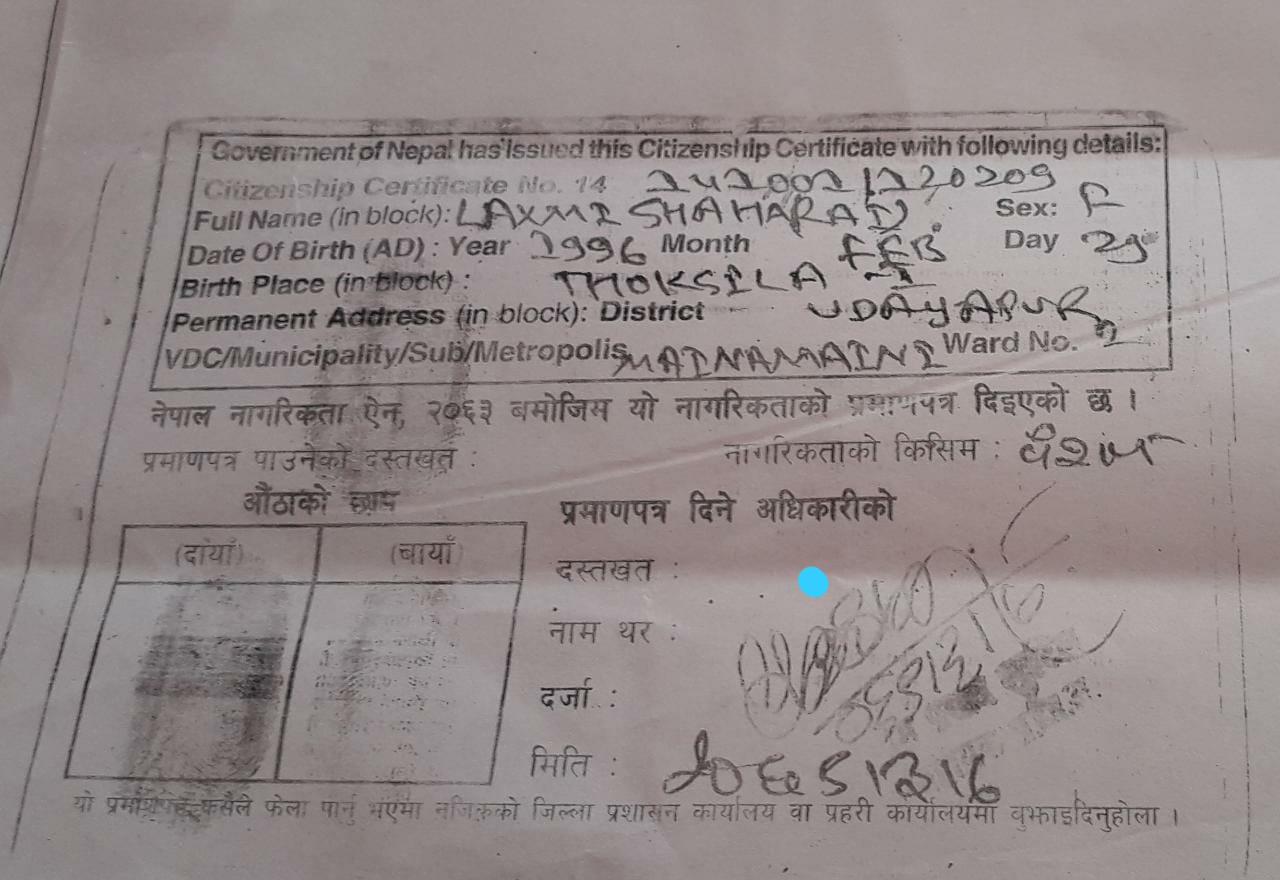 Government of Nepal has issued this Citizenship Certificate with following details:
Citizenship Certificate No. 14
Full Name (in block): LAXMI SHAHARAI Sex: F
Date Of Birth (AD) : Year 1996 Month FEB Day 29
Birth Place (in block) : THOKSILA
Permanent Address (in block): District UDAYAPUR
VDC/Municipality/Sub/Metropolis MAINAMAINI Ward No. 2
नेपाल नागरिकता ऐन, २०६३ बमोजिम यो नागरिकताको प्रमाणपत्र दिइएको छ ।
प्रमाणपत्र पाउनेको दस्तखत : नागरिकताको किसिम : वंशज
औंठाको छाप प्रमाणपत्र दिने अधिकारीको
(दायाँ) (बायाँ)
दस्तखत :
नाम थर :
दर्जा :
मिति :
यो प्रमाणपत्र कसैले फेला पार्नु भएमा नजिकको जिल्ला प्रशासन कार्यालय वा प्रहरी कार्यालयमा वुझाइदिनुहोला ।